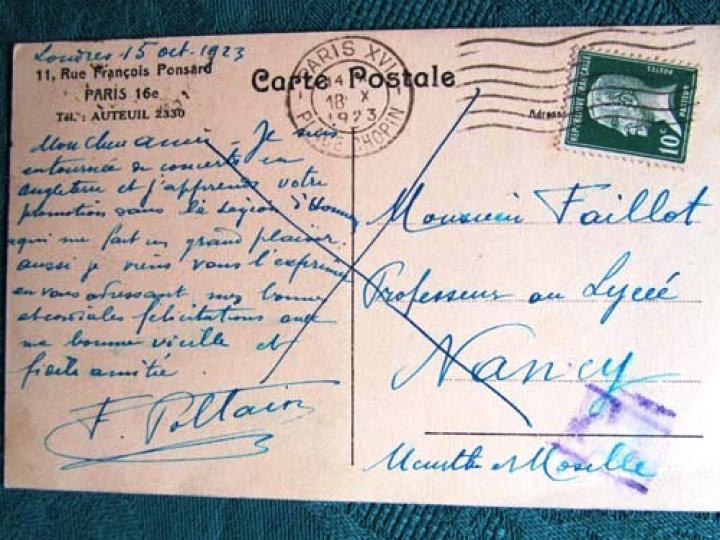 Londres 15 oct. 1923
11, Rue François Ponsard
PARIS 16e
Tél. : AUTEUIL 2330
Carte Postale
PARIS XVI
14
18 X
1923
PLACE CHOPIN
Adresse
REPUBLIQUE FRANCAISE
POSTES
PASTEUR
10c
Mon cher ami, Je suis
en tournée de concerts en
Angleterre et j'apprends votre
promotion dans la Légion d'Honneur
qui me fait un grand plaisir.
aussi je viens vous l'exprimer
en vous adressant mes bonnes
et cordiales félicitations avec
ma bonne vieille et
fidèle amitié
F.
Monsieur Faillot
Professeur au Lycée
Nancy
Meurthe et Moselle